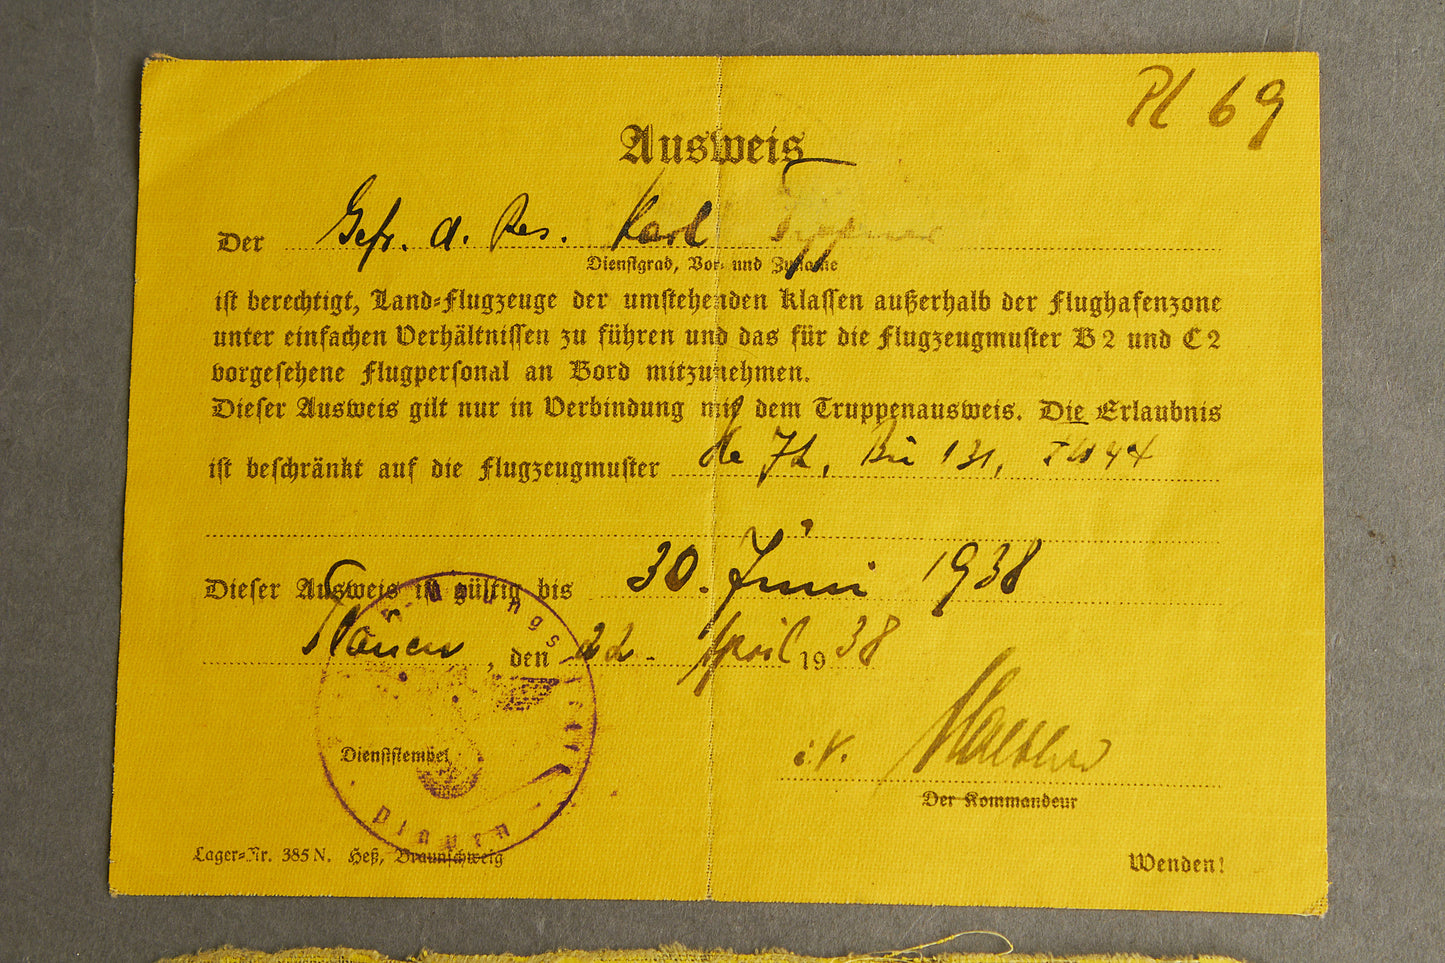 Pl 69
Ausweis
Der Gefr. d. Res. Karl Tippner
Dienstgrad, Vor- und Zuname
ist berechtigt, Land-Flugzeuge der umstehenden Klassen außerhalb der Flughafenzone
unter einfachen Verhältnissen zu führen und das für die Flugzeugmuster B 2 und C 2
vorgesehene Flugpersonal an Bord mitzunehmen.
Dieser Ausweis gilt nur in Verbindung mit dem Truppenausweis. Die Erlaubnis
ist beschränkt auf die Flugzeugmuster He 72, Bü 131, FW 44
Dieser Ausweis ist gültig bis 30. Juni 1938
Plauen, den 22. April 1938
Dienststempel
Plauen
i.V.
Der Kommandeur
Lager-Nr. 385 N. Heß, Braunschweig
Wenden!